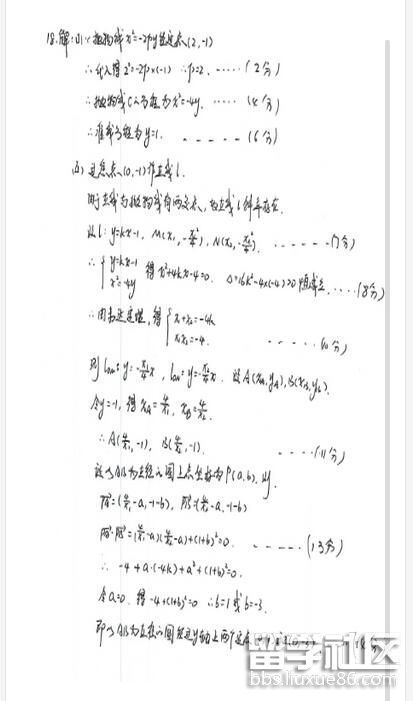 18.解:(1)∵抛物线x²=-2py经过点(2,-1)
∴代入得2²=-2p×(-1) ∴p=2. ······(2分)
∴抛物线C的方程为x²=-4y. ······(4分)
∴准线方程为y=1. ------(6分)
过焦点(0,-1)作直线l.
由于直线与抛物线有两交点,故直线l斜率存在.
设l:y=kx-1, M(x₁,-x₁²/4), N(x₂,-x₂²/4). ------(7分)
∴{y=kx-1 x²=-4y 得x²+4kx-4=0. Δ=16k²-4×(-4)>0恒成立. ····(8分)
∴由韦达定理,得{x₁+x₂=-4k x₁x₂=-4. ······(10分)
则lOM:y=-x₁/4x, lON:y=-x₂/4x. 设A(xA,yA),B(xB,yB).
令y=-1,得xA=4/x₁, xB=4/x₂.
∴A(4/x₁,-1), B(4/x₂,-1). ····(11分)
设以AB为直径的圆上点坐标为P(a,b),则
PA=(4/x₁-a,-1-b), PB=(4/x₂-a,-1-b)
PA·PB=(4/x₁-a)(4/x₂-a)+(1+b)²=0. ------(13分)
∴ -4+a·(-4k)+a²+(1+b)²=0.
令a=0, 得-4+(1+b)²=0 ∴b=1或b=-3.
即以AB为直径的圆经过y轴上两个定点
留学社区
bbs.liuxue86.com